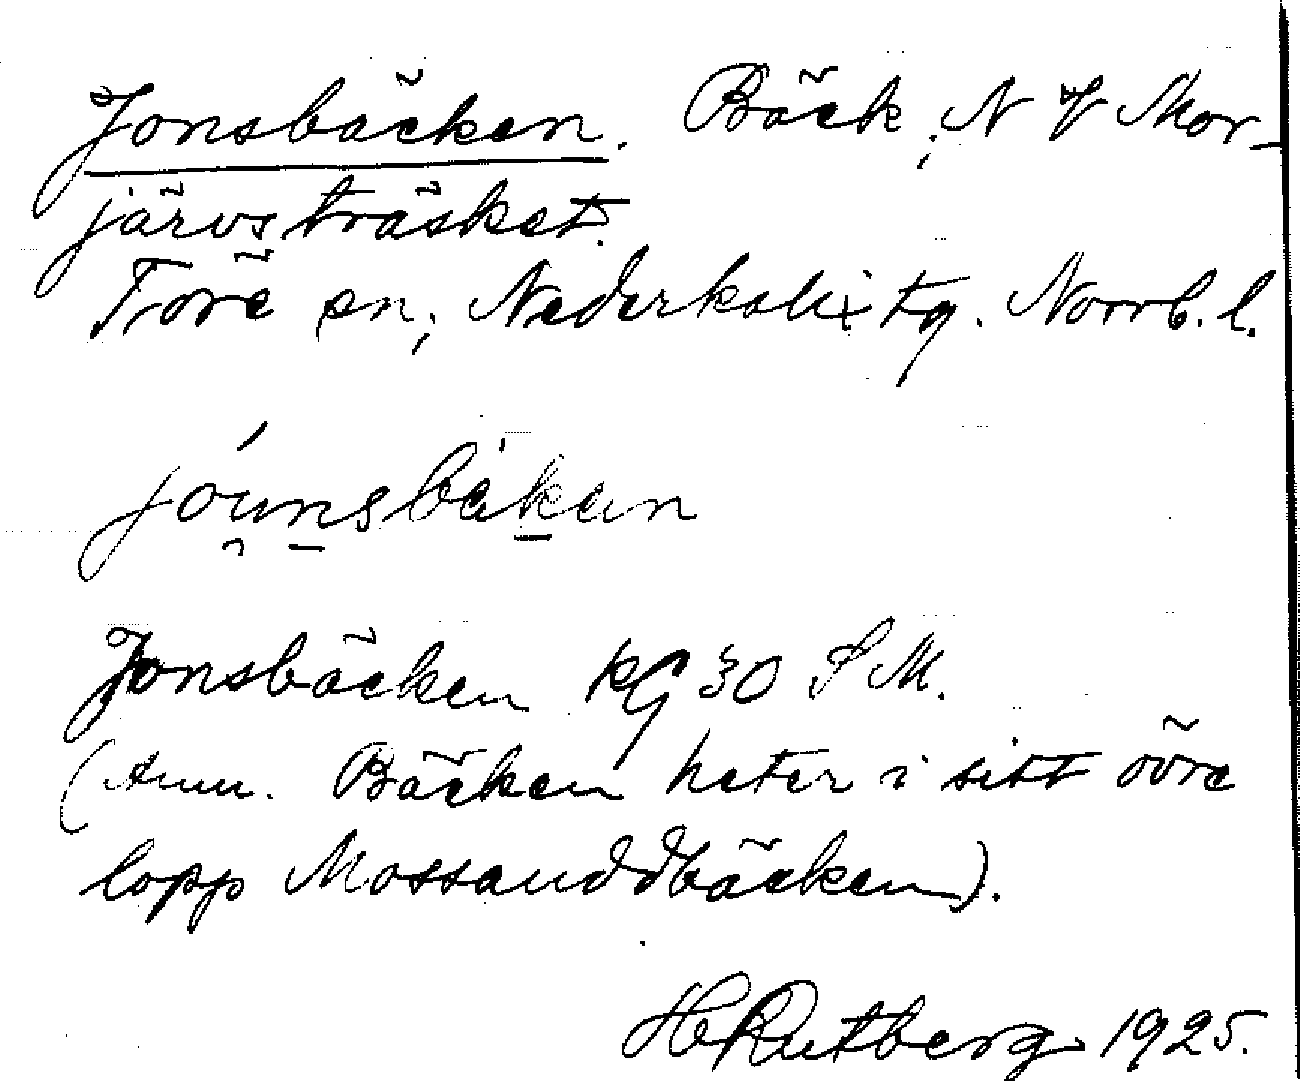 Jonsbäcken. Bäck, N V Mor-
järvsträsket.
Töre sn, Nederkalix tg. Norrb. l.
jóu̯n̲sbäk̲än
Jonsbäcken kg 30 S M.
(Anm. Bäcken heter i sitt övre
lopp Mossanddbäcken).
H Rutberg 1925.